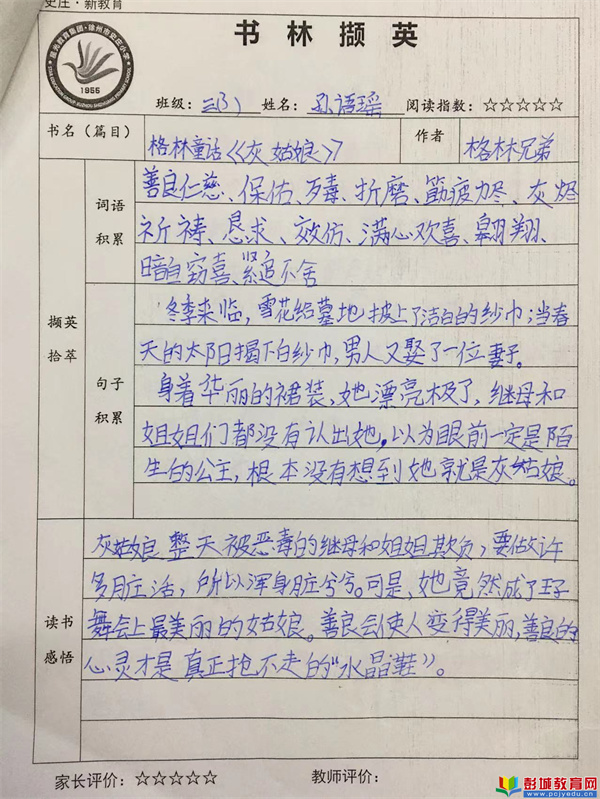 史庄·新教育
书林撷英
1956
班级：三(3) 姓名：孙语瑶 阅读指数：☆☆☆☆☆
书名（篇目） 格林童话《灰姑娘》 作者 格林兄弟
撷英拾萃
词语积累
善良仁慈、保佑、歹毒、折磨、筋疲力尽、灰烬
祈祷、恳求、效仿、满心欢喜、翱翔、
暗自窃喜、紧追不舍
句子积累
冬季来临，雪花给墓地披上了洁白的纱巾；当春
天的太阳揭下白纱巾，男人又娶了一位妻子。
身着华丽的裙装，她漂亮极了，继母和
姐姐们都没有认出她。以为眼前一定是陌
生的公主，根本没有想到她就是灰姑娘。
读书感悟
灰姑娘整天被恶毒的继母和姐姐欺负，要做许
多脏活，所以浑身脏兮兮。可是，她竟然成了王子
舞会上最美丽的姑娘。善良会使人变得美丽，善良的
心灵才是真正抢不走的“水晶鞋”。
家长评价：☆☆☆☆☆ 教师评价：
彭城教育网
www.pcjyedu.cn